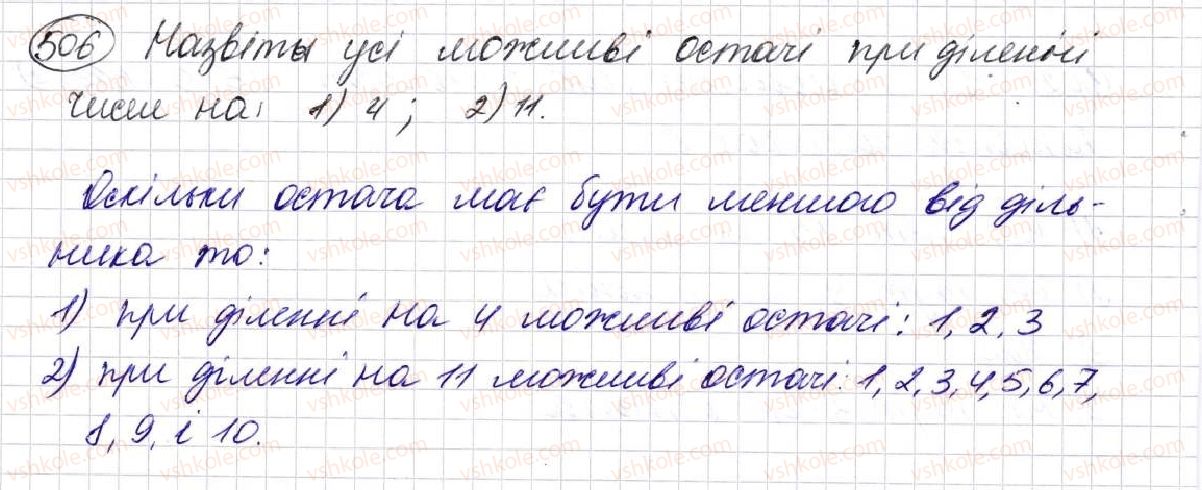 506 Назвіть усі можливі остачі при діленні
чисел на: 1) 4; 2) 11.
Оскільки остача має бути меншою від діль-
ника то:
1) при діленні на 4 можливі остачі: 1, 2, 3
2) при діленні на 11 можливі остачі: 1, 2, 3, 4, 5, 6, 7,
8, 9, і 10.